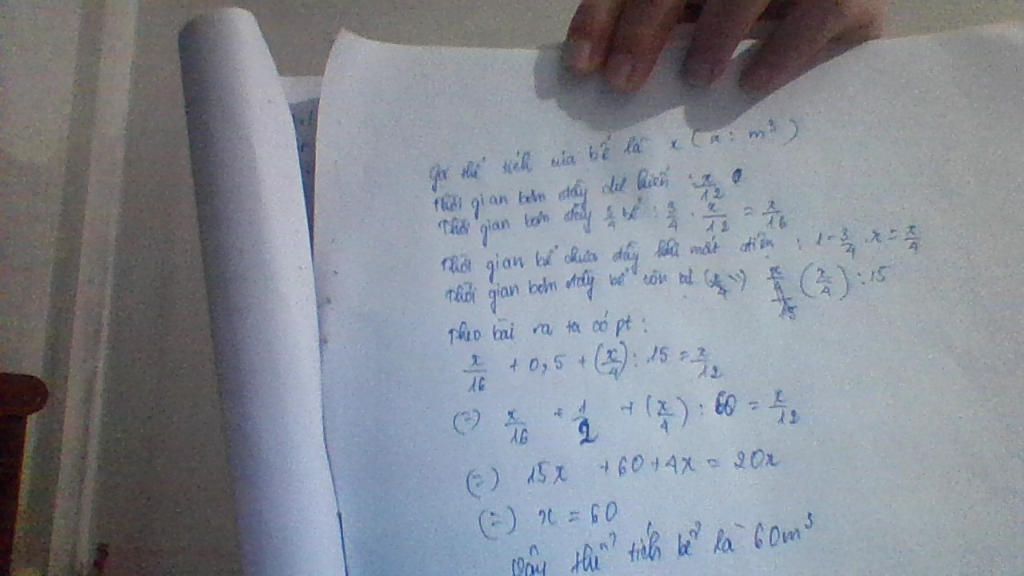 Gọi thể tích của bể là x (x: m³)
Thời gian bơm đầy dự kiến : x/12
Thời gian bơm đầy 3/4 bể : 3/4 . x/12 = x/16
Thời gian bể chưa đầy khi mất điện : 1-3/4 . x = x/4
Thời gian bơm đầy bể còn lại (x/4) : 15
Theo bài ra ta có pt :
x/16 + 0,5 + (x/4) : 15 = x/12
(=) x/16 + 1/2 + (x/4) : 60 = x/12
(=) 15x + 60 + 4x = 20x
(=) x = 60
Vậy thể tích bể là 60m³